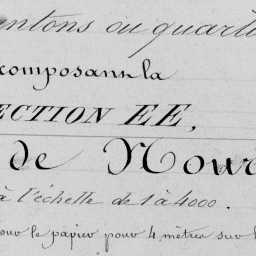 antons ou quarti
composant la
ECTION EE,
de Nour
à l'échelle de 1 à 4000.
our le papier pour 4 mètres sur l